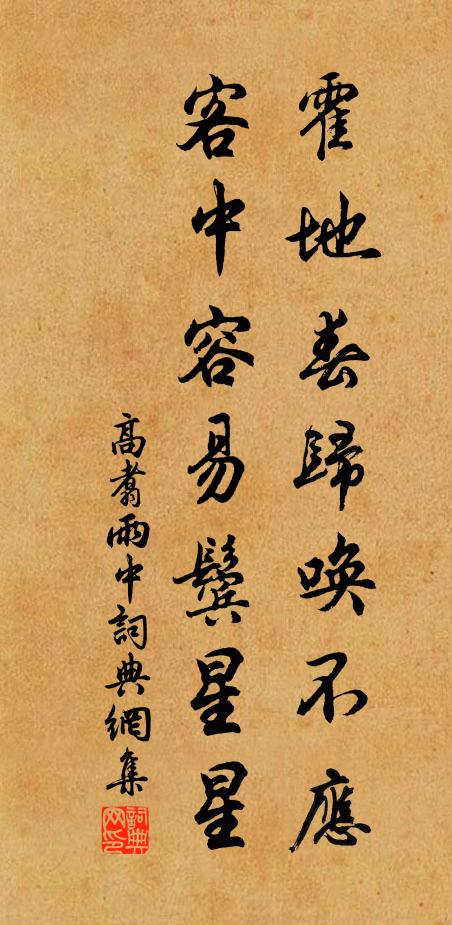 霍地春歸喚不應
客中容易鬢星星
高翥雨中詞典網集
詞典網印